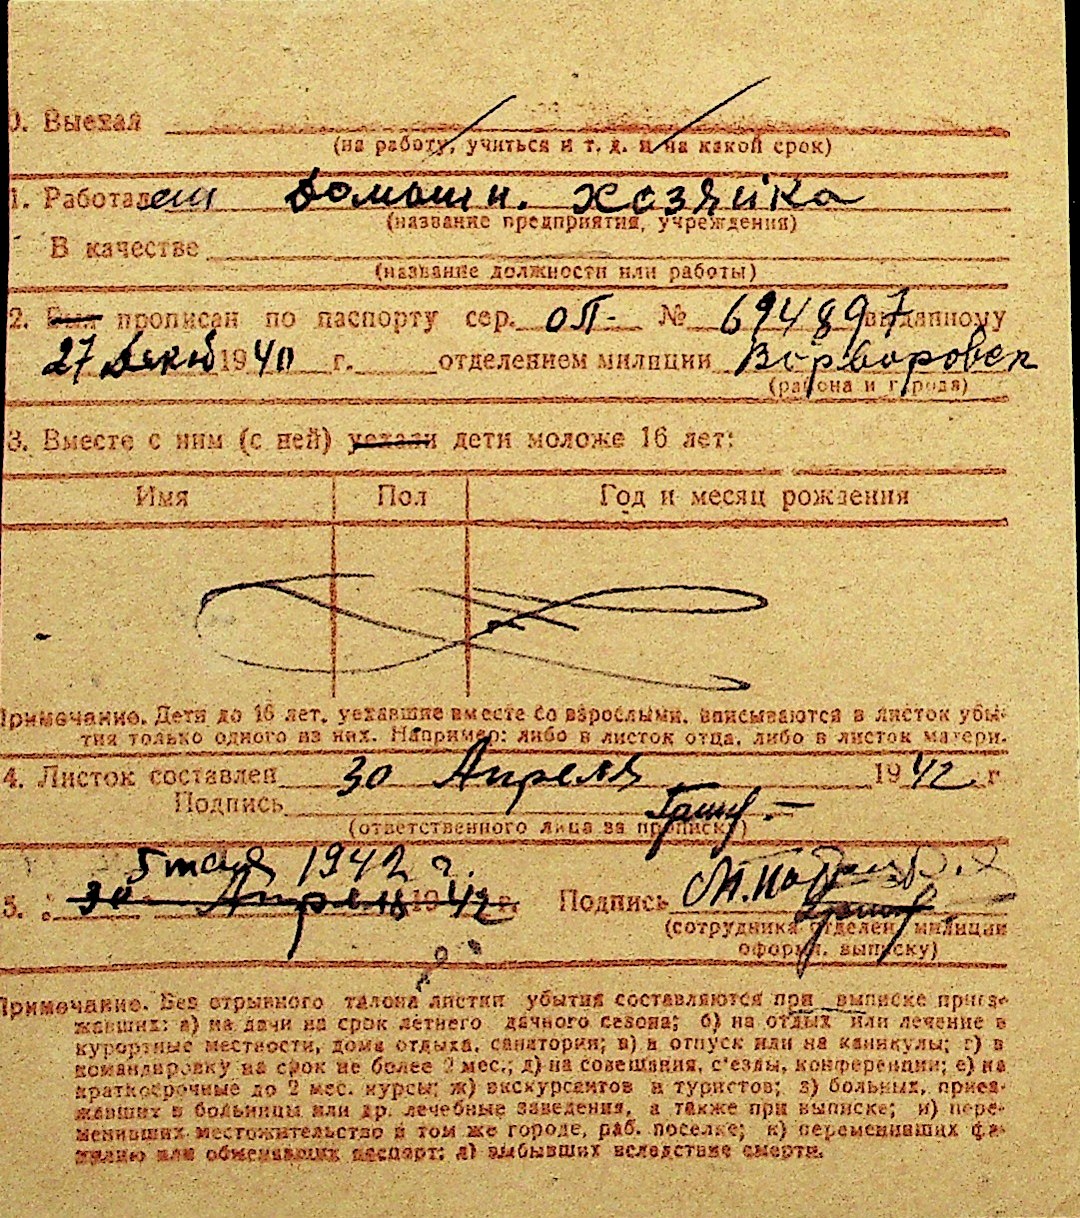 0. Выехал
(на работу, учиться и т. д. и на какой срок)
1. Работал Домашн. хозяйка
(название предприятия, учреждения)
В качестве
(название должности или работы)
2. Был прописан по паспорту сер. ОП- № 694897 выданному
27 Декаб 1940 г. отделением милиции Ворворовск
(района и города)
3. Вместе с ним (с ней) уехали дети моложе 16 лет:
Имя Пол Год и месяц рождения
Примечание. Дети до 16 лет, уехавшие вместе со взрослыми, вписываются в листок убы-
тия только одного из них. Например: либо в листок отца, либо в листок матери.
4. Листок составлен 30 Апреля 1942 г
Подпись
(ответственного лица за прописку)
5 мая 1942 г.
5. 30 Апреля 1942 г. Подпись
(сотрудника отделен. милиции
оформ. выписку)
Примечание. Без отрывного талона листки убытия составляются при выписке приез-
жавших: а) на дачи на срок летнего дачного сезона; б) на отдых или лечение в
курортные местности, дома отдыха, санатории; в) в отпуск или на каникулы; г) в
командировку на срок не более 2 мес.; д) на совещания, с'езды, конференции; е) на
краткосрочные до 2 мес. курсы; ж) экскурсантов и туристов; з) больных, приез-
жавших в больницы или др. лечебные заведения, а также при выписке; и) пере-
менивших местожительство в том же городе, раб. поселке; к) переменивших фа-
милию или обменявших паспорт; л) выбывших вследствие смерти.